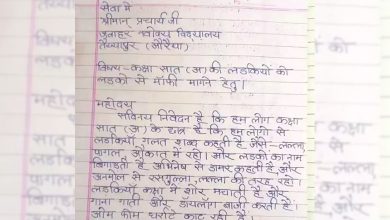 सेवा में
श्रीमान् प्रचार्य जी
जवाहर नवोदय विद्यालय
तैय्यापुर (औरैया)
विषय - कक्षा सात (अ) की लडकियों की
लडको से माफी मांगने हेतु।
महोदय
सविनय निवेदन है कि हम लोग कक्षा
सात (अ) के छात्र है कि हम लोगो से
लडकियाँ गलत शब्द कहती है जैसे - लल्ला,
पागल, औकात में रहो। और लडको का नाम
बिगाडती है अभिषेष से डामर कहती है और
अनमोल से रसगुल्ला
लडकियाँ कक्षा में शोर मचाती है और
गाना गाती और डायलाग बाजी करती है।
ओम फोम